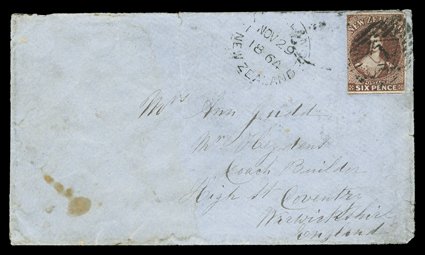 NOV 29
1864
NEW ZEALAND
NEW ZEALAND
SIX PENCE
Mrs Ann Judd
Mr Heydens
Coach Builder
High St Coventry
Warwickshire
England